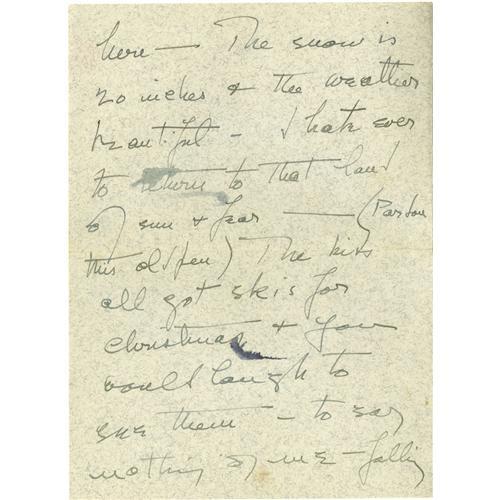 here — The snow is
20 inches & the weather
beautiful - I hate ever
to return to that land
of sun & fear — (Pardon
this old pen) The kids
all got skis for
Christmas & you
would laugh to
see them - to say
nothing of me - falling